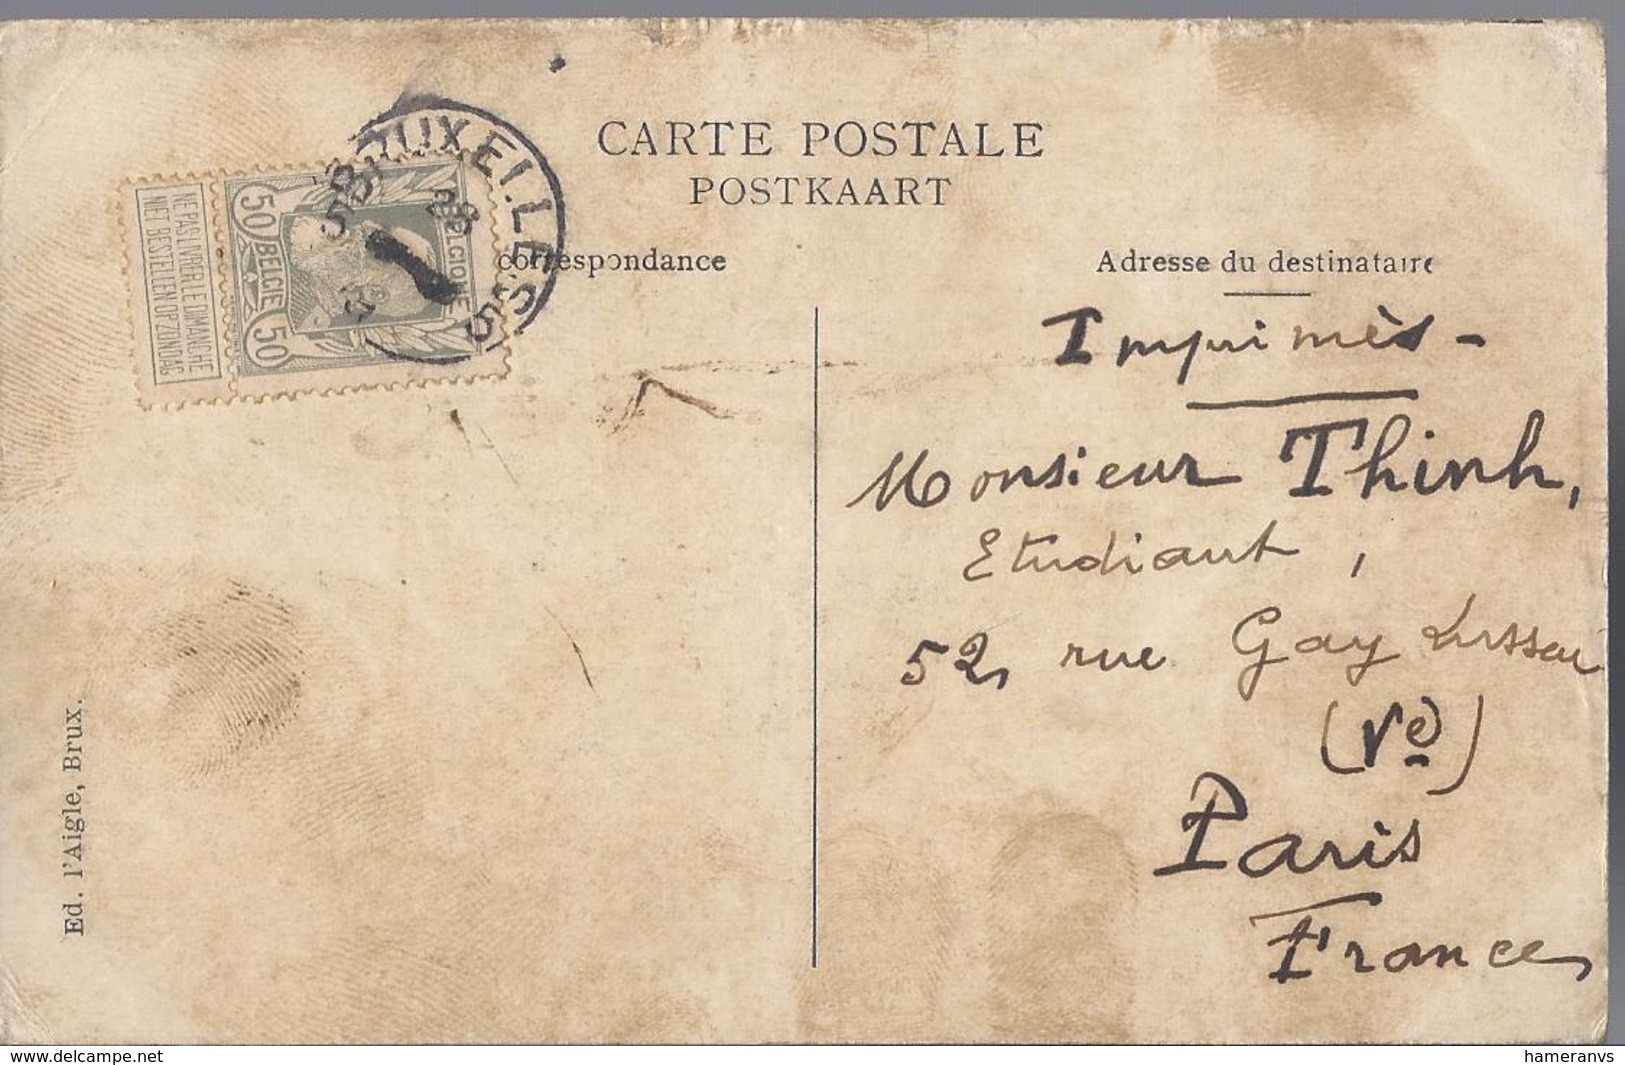 CARTE POSTALE
POSTKAART
correspondance
Adresse du destinataire
BRUXELLES 5
28
BELGIQUE
50 BELGIE 50
NE PAS LIVRER LE DIMANCHE
NIET BESTELLEN OP ZONDAG
Imprimés -
Monsieur Thinh,
Etudiant,
52, rue Gay Lussac
(Ve)
Paris
France
Ed. l'Aigle, Brux.
www.delcampe.net
hameranvs